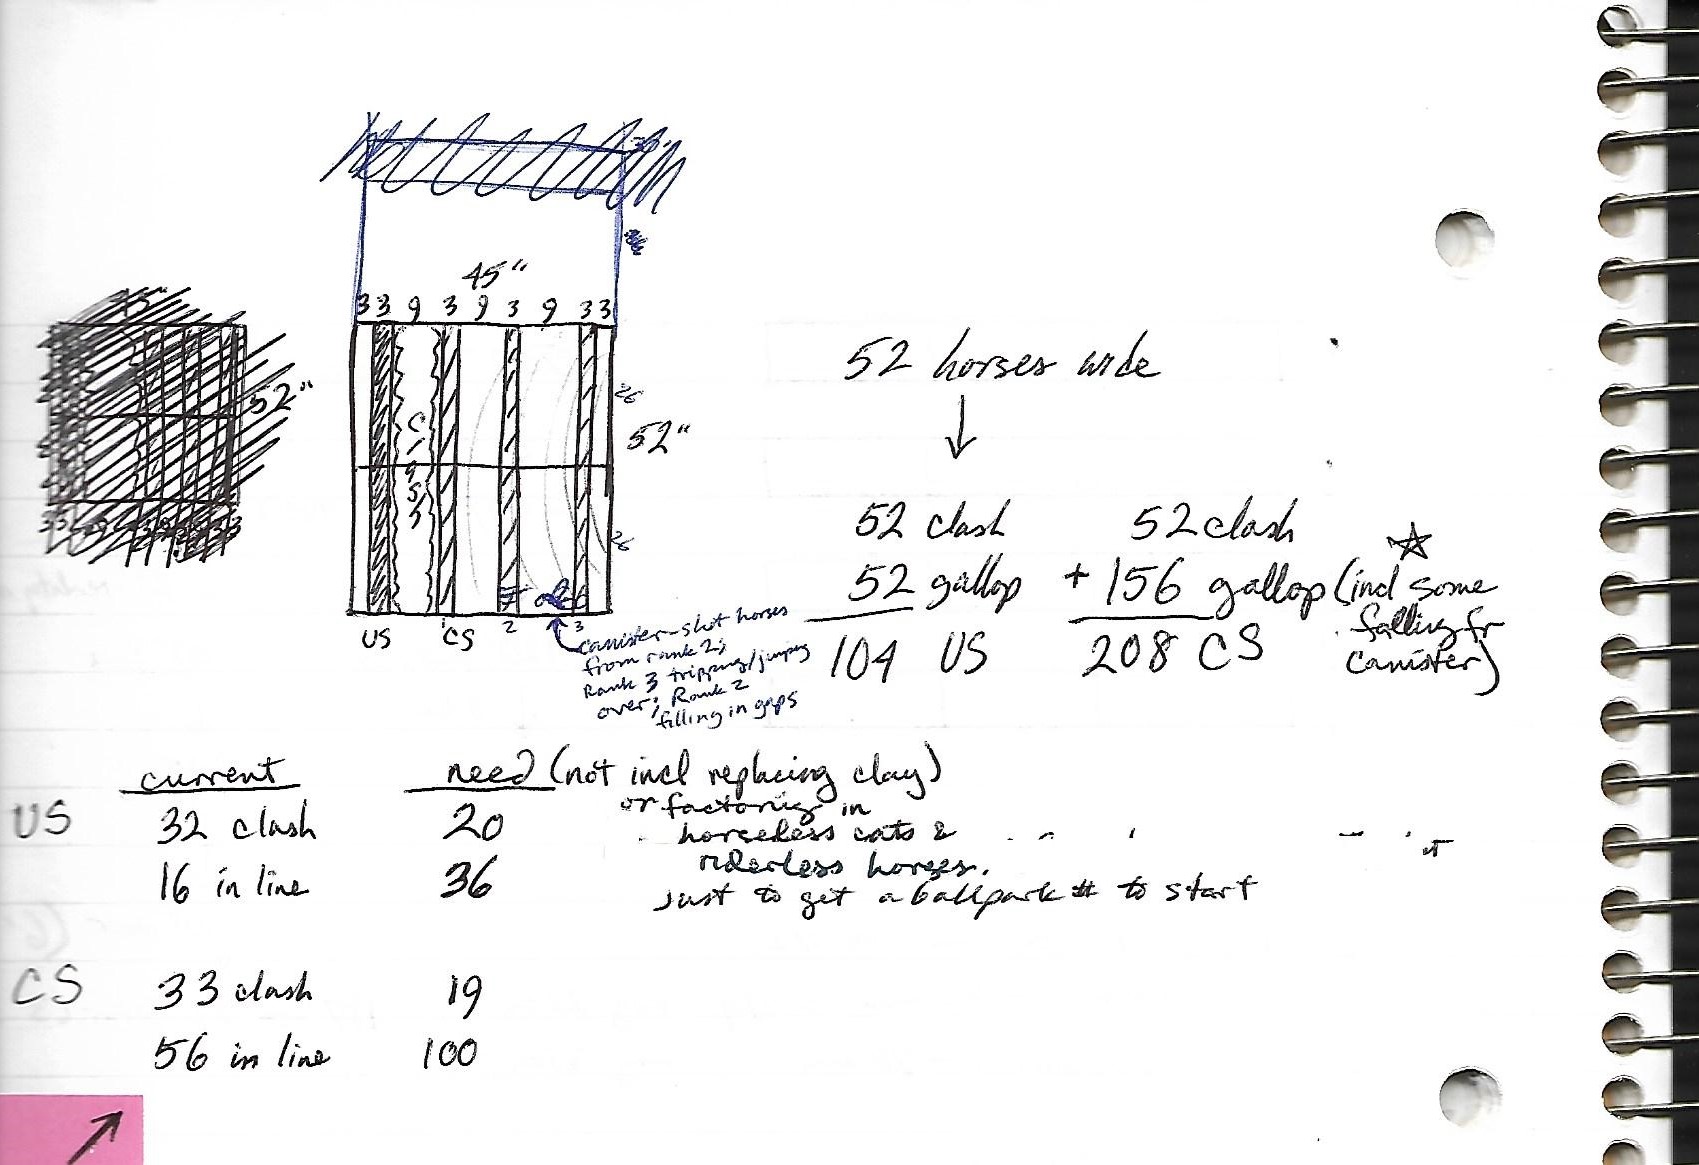 45"
3 3 9 3 9 3 9 3 3
52"
26
52"
26
clash
US
CS
2
3
canister-shot horses
from rank 2;
Rank 3 tripping/jumping
over; Rank 2
filling in gaps
52 horses wide
52 clash
52 gallop
104 US
52 clash
+ 156 gallop (incl some
falling fr
canister)
208 CS
current
need (not incl replacing clay)
or factoring in
horseless cats &
riderless horses.
just to get a ballpark # to start
US
32 clash 20
16 in line 36
CS
33 clash 19
56 in line 100